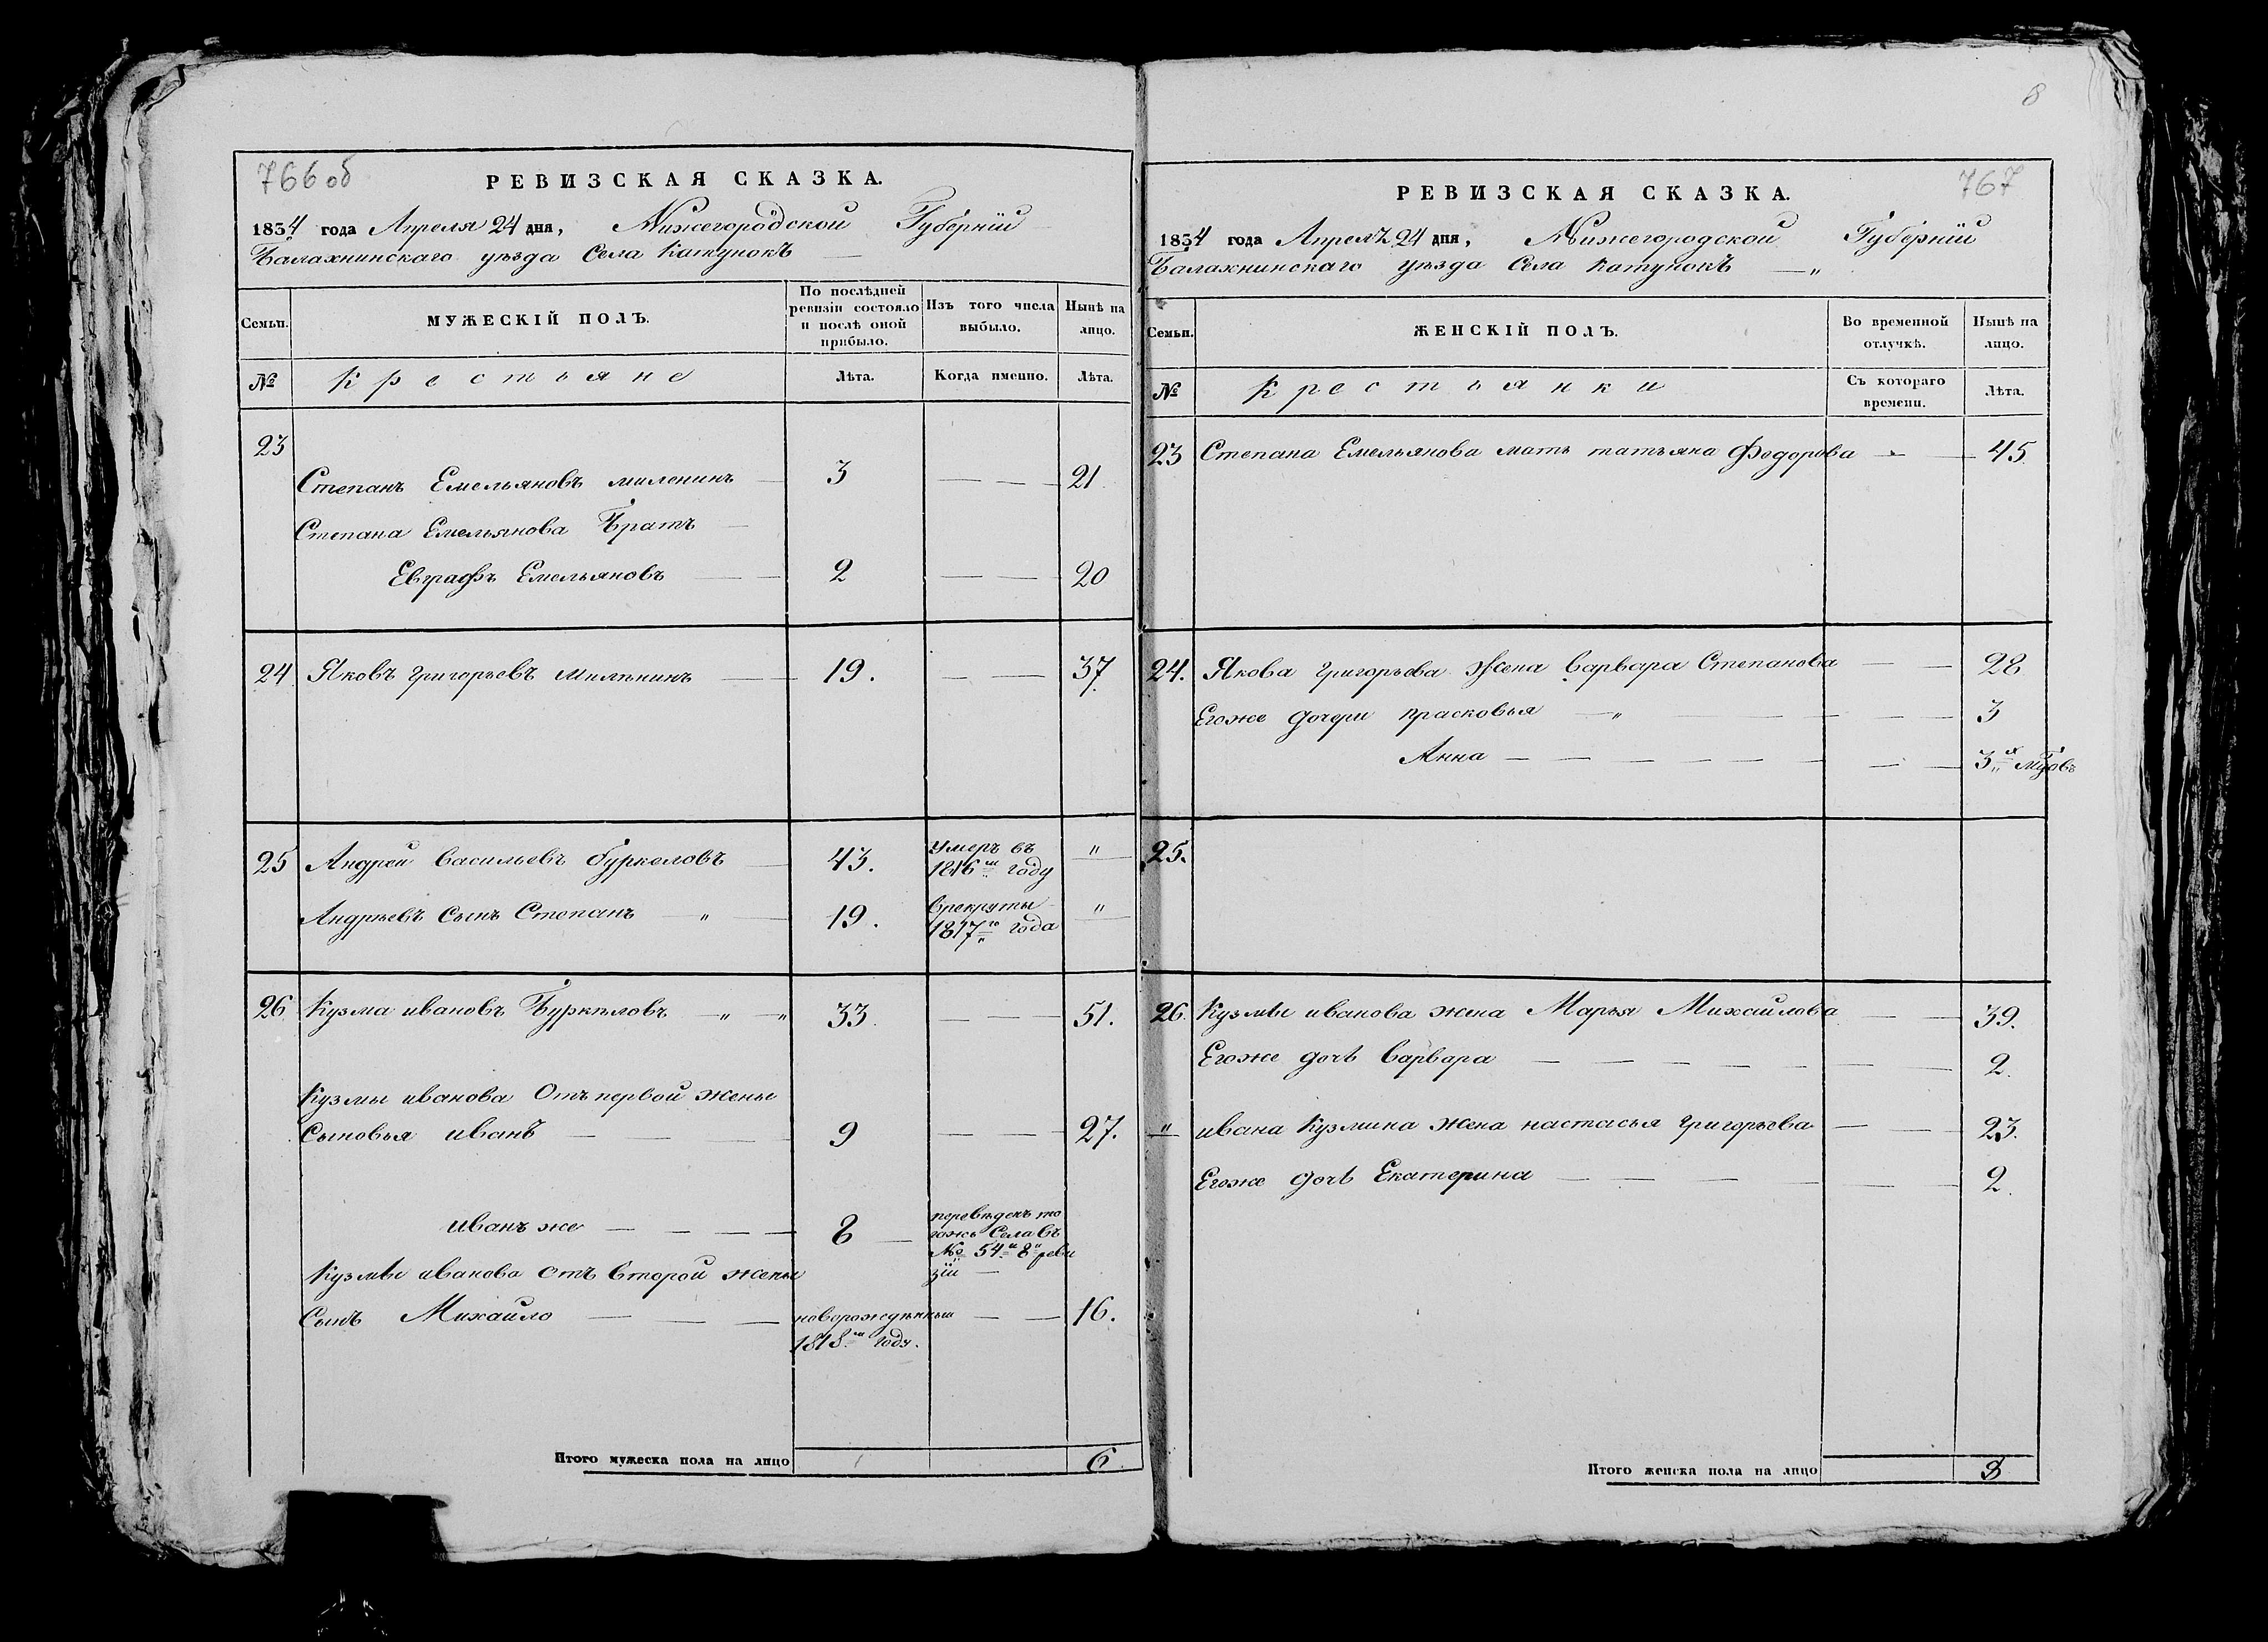 8
766 об
РЕВИЗСКАЯ СКАЗКА.
1834 года Апреля 24 дня, Нижегородской Губернiи
Балахнинскаго уѣзда Села Катунокъ
Семьи.
МУЖЕСКIЙ ПОЛЪ.
По послѣдней
ревизiи состояло
и послѣ оной
прибыло.
Изъ того числа
выбыло.
Нынѣ на
лицо.
№
Крестьяне
Лѣта.
Когда именно.
Лѣта.
23
Степанъ Емельяновъ миленинъ 3 21
Степана Емельянова Братъ
Евграфъ Емельяновъ 2 20
24 Яковъ григорьевъ милѣнинъ 19. 37.
25 Андрей васильевъ буркеловъ 43. умеръ въ "
1816м году
Андрѣевъ Сынъ Степанъ " 19. Врекруты "
1817го года
26 Кузма ивановъ Буркѣловъ " " 33. 51.
Кузмы иванова Отъ первой жены
Сыновья иванъ 9 27.
иванъ же 8 перевѣденъ то
гожъ Села въ
№ 54й 8й реви
зiи
Кузмы иванова отъ второй жены
Сынъ Михайло новорождѣнный 16.
1818м году.
Итого мужеска пола на лицо 6
767
РЕВИЗСКАЯ СКАЗКА.
1834 года Апреля 24 дня, Нижегородской Губернiи
Балахнинскаго уѣзда Села Катунокъ "
Семьи.
ЖЕНСКIЙ ПОЛЪ.
Во временной
отлучкѣ.
Нынѣ на
лицо.
№
Крестьянки
Съ котораго
времени.
Лѣта.
23 Степана Емельянова мать татьяна Федорова 45.
24. Якова григорьева Жена варвара Степанова 28
Егоже дочери прасковья " 3
Анна 3х мцовъ
25.
26. Кузмы иванова жена Марья Михаилова 39.
Егоже дочь варвара 2.
" ивана Кузмина жена настасья григорьева 23.
Егоже дочь Екатерина 2.
Итого женска пола на лицо 8